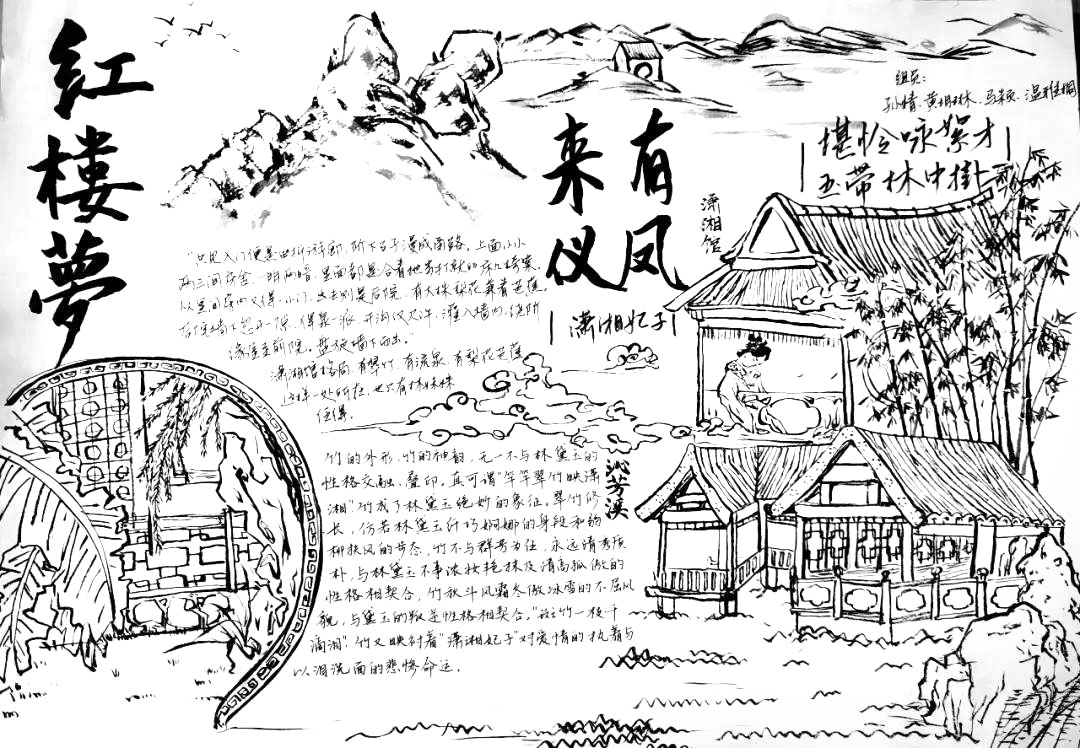 红楼梦
有凤
来仪
组员:
孙情、黄琳、马颖、温雅娴
堪怜咏絮才
玉带林中掛
潇湘馆
潇湘妃子
"只见入门便是曲折游廊,阶下石子漫成甬路。上面小小
两三间房舍,一明两暗,里面都是合着地步打就的床几椅案。
从里间房内又得一小门,出去则是后院,有大株梨花兼着芭蕉。
后院墙下忽开一隙,得泉一派,开沟仅尺许,灌入墙内,绕阶
缘屋至前院,盘旋墙下而出。"
潇湘馆格局,有翠竹,有流泉,有梨花芭蕉
这样一处所在,也只有林妹妹
住得。
沁芳溪
竹的外形,竹的神韵,无一不与林黛玉的
性格交融、叠印。真可谓"竿竿翠竹映潇
湘"竹成了林黛玉绝妙的象征。翠竹修
长,仿若林黛玉纤巧婀娜的身段和弱
柳扶风的步态,竹不与群芳为伍,永远清秀质
朴,与林黛玉不事浓妆艳抹及清高孤傲的
性格相契合,竹秋斗风霜冬傲冰雪的不屈风
貌,与黛玉的叛逆性格相契合。"斑竹一枝千
滴泪"竹又映衬着"潇湘妃子"对爱情的执着与
以泪洗面的悲惨命运。